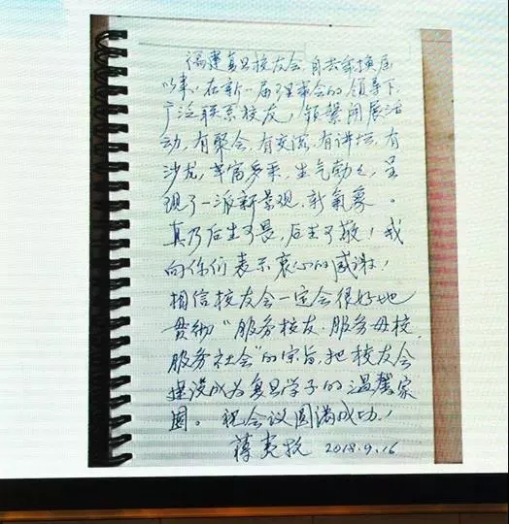 福建复旦校友会自去年换届
以来，在新一届理事会的领导下，
广泛联系校友，频繁开展活
动，有聚会，有交流，有讲坛，有
沙龙，丰富多采，生气勃勃，呈
现了一派新景观，新氣象。
真乃后生可畏，后生可敬！我
向你们表示衷心的感谢！
相信校友会一定会很好地
贯彻“服务校友，服务母校，
服务社会”的宗旨，把校友会
建设成为复旦学子的温馨家
园。祝会议圆满成功！
2018.9.16